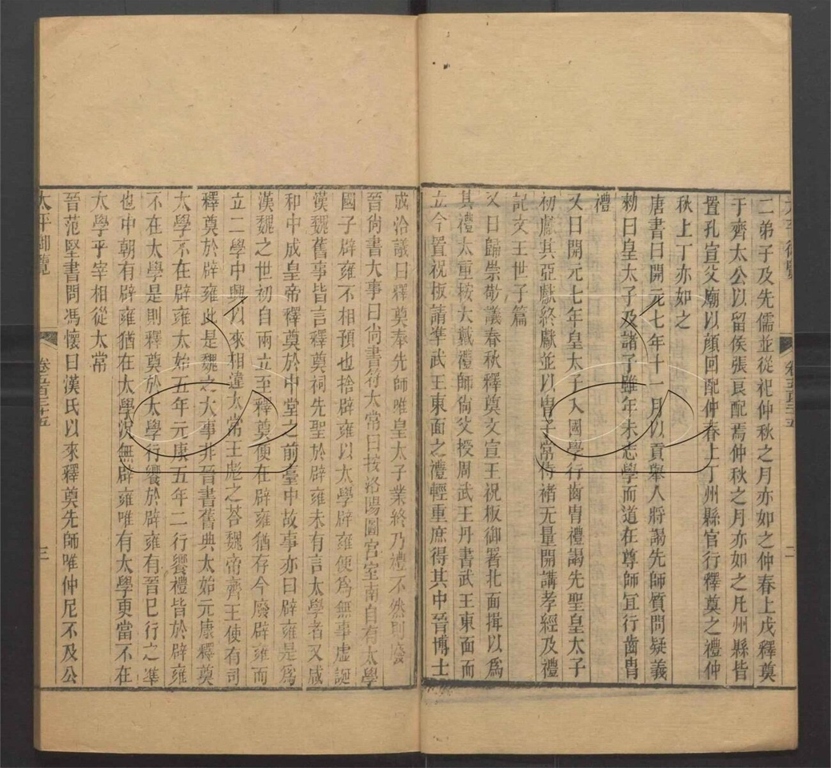 二弟子及先儒並從祀仲秋之月亦如之仲春上戊釋奠
于齊太公以留侯張良配焉仲秋之月亦如之凡州縣皆
置孔宣父廟以顔回配仲春上丁州縣官行釋奠之禮仲
秋上丁亦如之
唐書曰開元七年十一月以貢舉人將謁先師質問疑義
勑曰皇太子及諸子雖年未志學而道在尊師宜行齒冑
禮
又曰開元七年皇太子入國學行齒冑禮謁先聖皇太子
初獻其亞獻終獻並以冑子常侍褚无量開講孝經及禮
記文王世子篇
又曰歸崇敬議春秋釋奠文宣王祝板御署北面揖以爲
其禮太重按大戴禮師尙父授周武王丹書武王東面而
立今置祝板請準武王東面之禮輕重庶得其中晉博士
成洽議曰釋奠奉先師唯皇太子業終乃禮不然則廢
晉尙書大事曰尙書符太常曰按洛陽圖宫室南自有太學
國子辟雍不相預也捨辟雍以太學辟雍便爲無事虛誕
漢魏舊事皆言釋奠祠先聖於辟雍未有言太學者又咸
和中成皇帝釋奠於中堂之前臺中故事亦曰辟雍是爲
漢魏之世初自兩立至釋奠便在辟雍猶存今廢辟雍而
立二學中興以來相違太常王彪之荅魏帝齊王使有司
釋奠於辟雍此是魏之大事非晉書舊典太始元康釋奠
太學不在辟雍太始五年元康五年二行饗禮皆於辟雍
不在太學是則釋奠於太學行饗於辟雍有晉已行之準
也中朝有辟雍猶在太學況無辟雍唯有太學更當不在
太學乎宰相從太常
晉范堅書問馮懷曰漢氏以來釋奠先師唯仲尼不及公
太平御覽
卷五百三十五
三